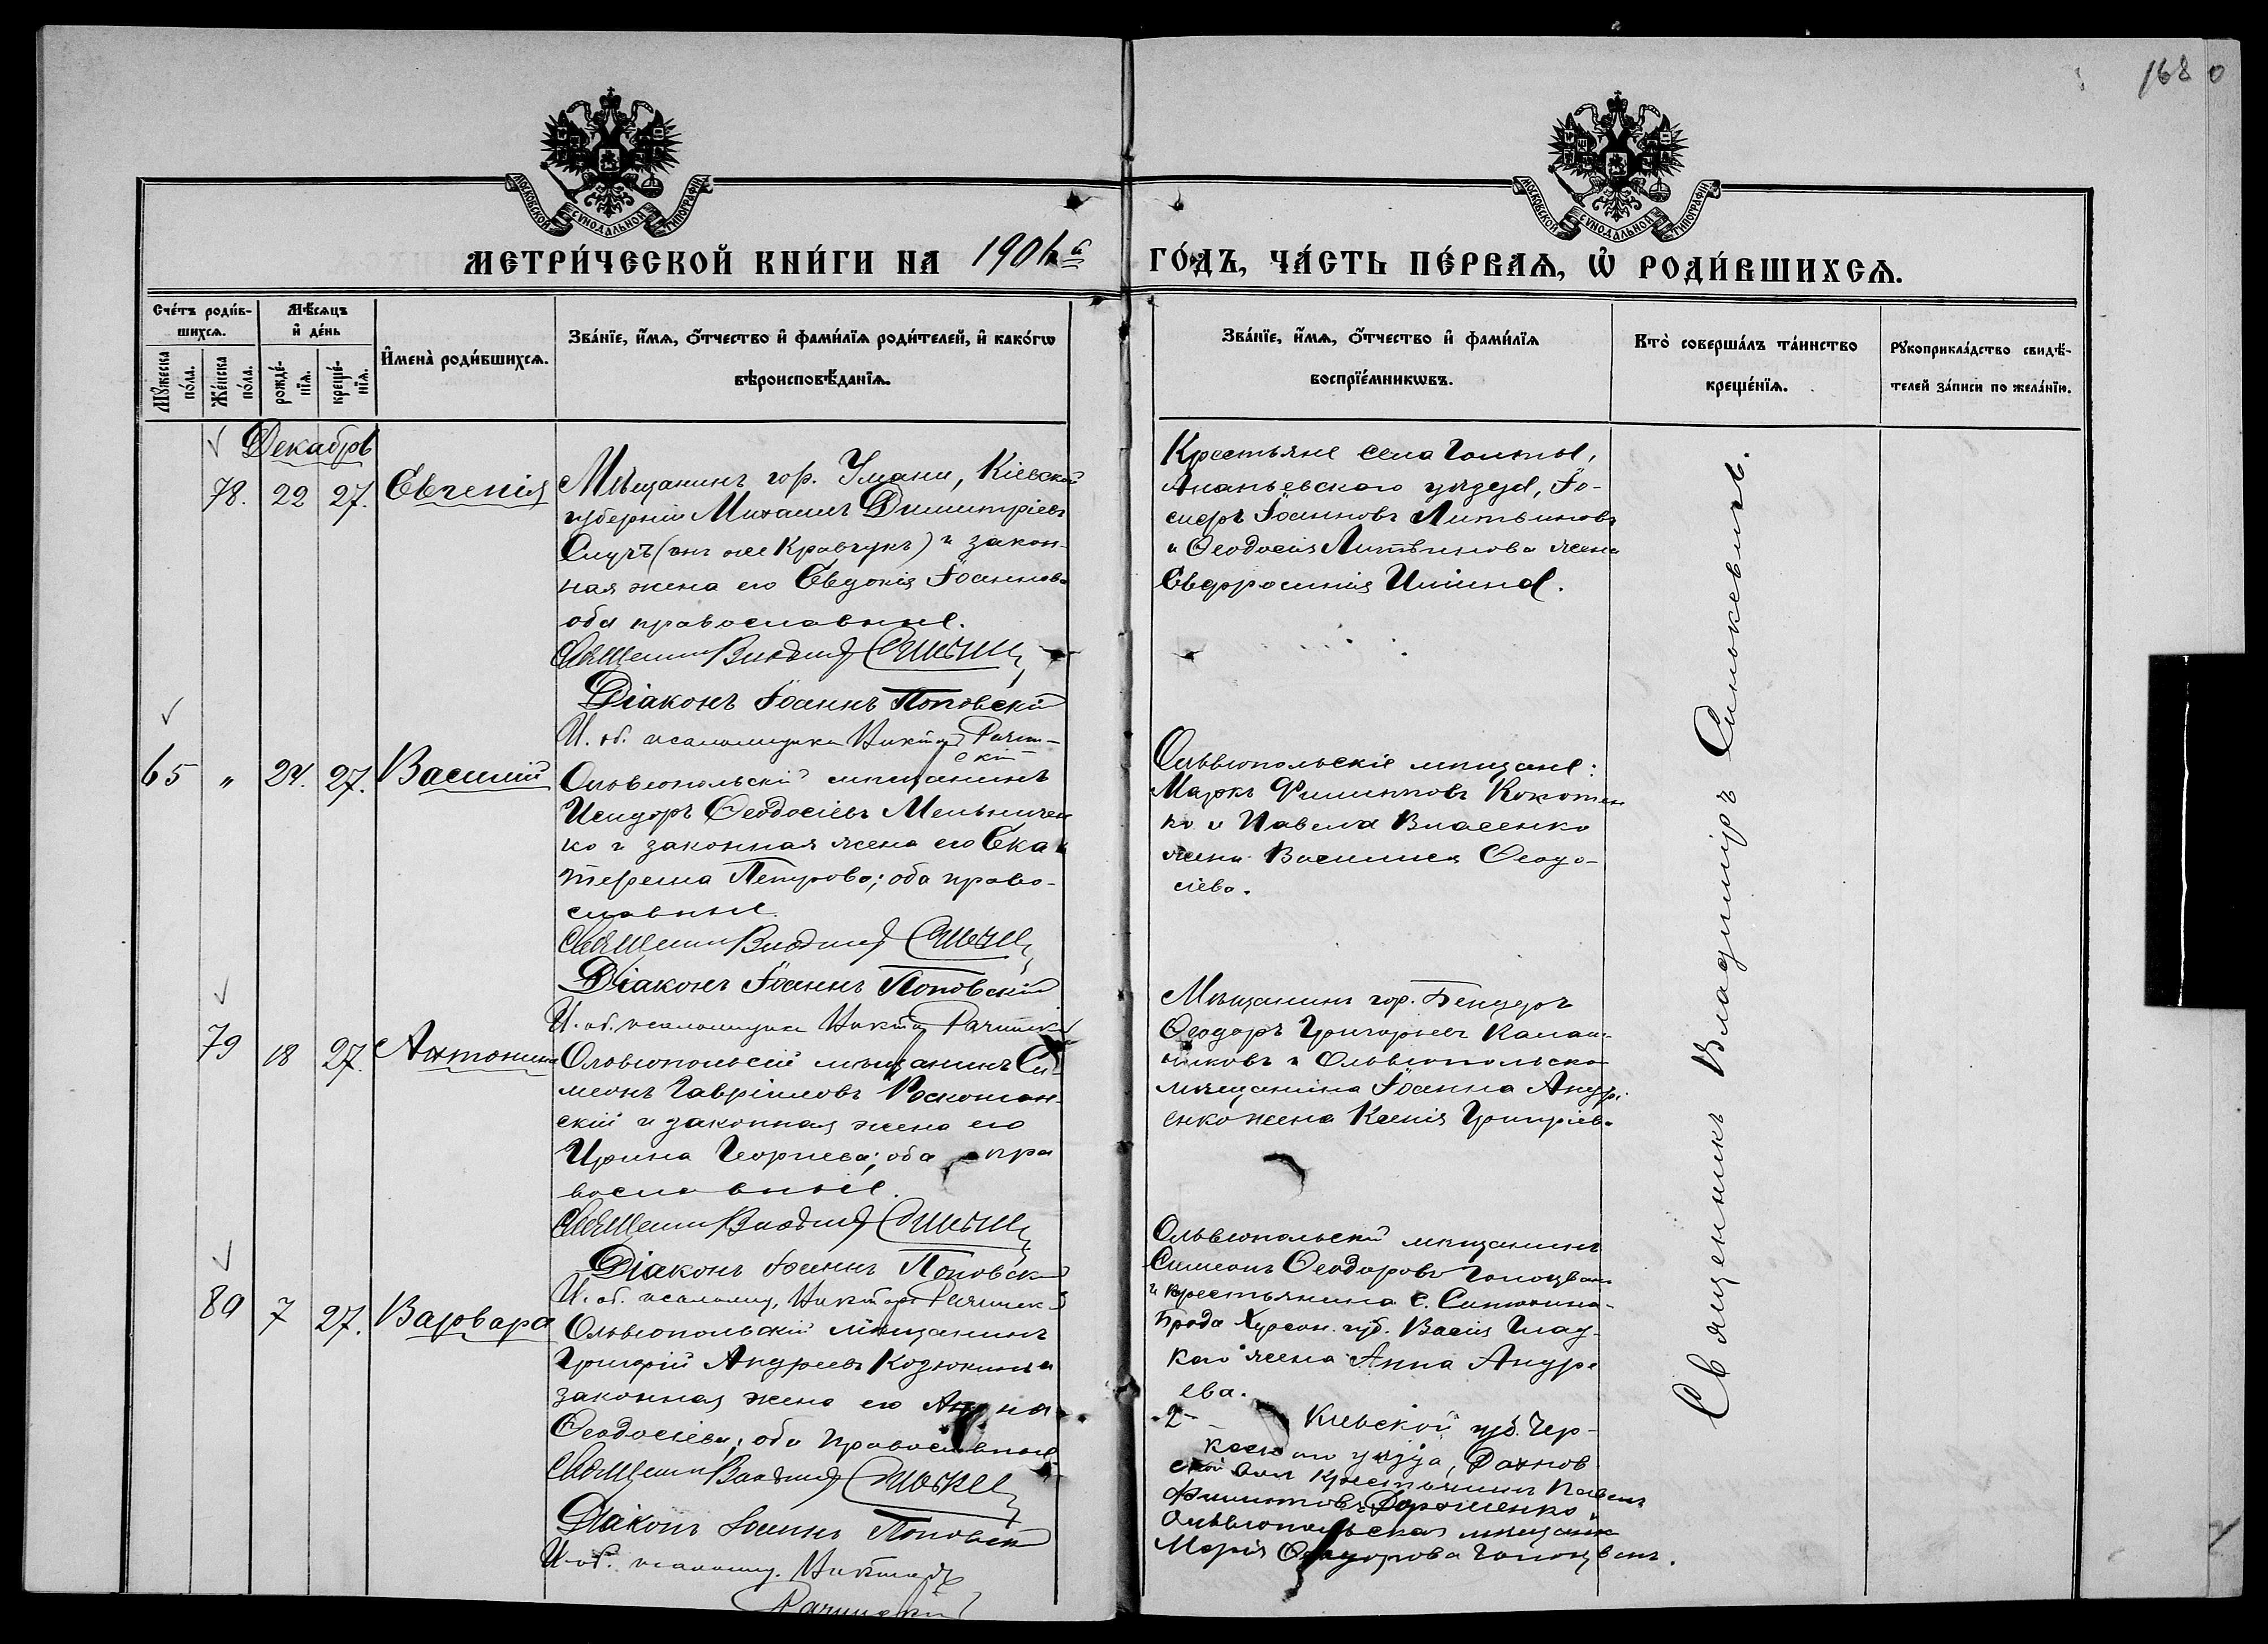 168
МОСКОВСКОЙ СУНОДАЛЬНОЙ ТИПОГРАФІИ
МОСКОВСКОЙ СУНОДАЛЬНОЙ ТИПОГРАФІИ
МЕТРИ́ЧЕСКОЙ КНИ́ГИ НА 190
ГО́ДЪ, ЧА́СТЬ ПЕ́РВАѦ, Ѡ҆ РОДИ́ВШИХСѦ.
Сче́тъ роди́в-
шихсѧ.
Мѣ́сѧцъ
и҆ де́нь
Мꙋ́жеска по́ла.
Же́нска по́ла.
рожде́-
нїѧ.
креще́-
нїѧ.
И҆мена̀ роди́вшихсѧ.
Зва́нїе, и҆́мѧ, ѻ҆́тчество и҆ фами́лїѧ роди́телей, и҆ како́гѡ
вѣроисповѣ́данїѧ.
Зва́нїе, и҆́мѧ, ѻ҆́тчество и҆ фами́лїѧ
воспрїе́мникѡвъ.
Кто̀ соверша́лъ та́инство
креще́нїѧ.
Рꙋкоприкла́дство свидѣ́-
телей за́писи по жела́нїю.
Декабрь
78. 22 27. Евгенія
Мѣщанинъ гор. Умани, Кіевской
губерніи Михаилъ Димитріевъ
(онъ же Кравчукъ) и закон-
ная жена его Евдокія Іоаннова
оба православные.
Священникъ Владимір
Діаконъ Іоаннъ Поповскій
И. об. псаломщика
Крестьяне села Голты,
Ананьевскаго уѣзда, Іо-
сифъ Іоанновъ Литвиновъ
и Ѳеодосія Литвинова жена
Евфросинія
65 " 24. 27. Василій
Ольвіопольскій мѣщанинъ
Исидоръ Ѳеодосіевъ Мельничен
ко и законная жена его Ека
терина Петрова; оба право-
славные.
Священникъ Владимір
Діаконъ Іоаннъ Поповскій
И. об. псаломщика
Ольвіопольскіе мѣщане:
Маркъ Филипповъ Кокотен
ко и Павла Власенко
жена Василиса Ѳеодо-
сіева.
79 18 27. Антонина
Ольвіопольскій мѣщанинъ Си-
меонъ Гавріиловъ
скій и законная жена его
Ирина Георгіева; оба пра
вославные.
Священникъ Владимір
Діаконъ Іоаннъ Поповскій
И. об. псаломщ.
Мѣщанинъ гор. Бендеръ
Ѳеодоръ Григорьевъ Калаш-
никовъ и Ольвіопольскаго
мѣщанина Іоанна Андрі
енко жена Ксенія Григоріева
80 7 27. Варвара
Ольвіопольскій мѣщанинъ
Григорій Андреевъ Козюкинъ и
законная жена его Анна
Ѳеодосіева; оба православные
Священникъ Владимір
Діаконъ Іоаннъ Поповскій
И. об. псаломщ.
Ольвіопольскій мѣщанинъ
Симеонъ Ѳеодоровъ Голоцванъ
и крестьянина с. Синюхина-
Брода Херсон. губ. Васія Глад-
каго жена Анна Андре
ева.
2 - Кіевской губ. Чер-
касскаго уѣзда, Дахнов
ской вол. крестьянинъ Павелъ
Филипповъ Дорошенко
Ольвіопольская мѣщанка
Марія Ѳеодорова Голоцванъ.
Священникъ Владиміръ Синькевичъ.